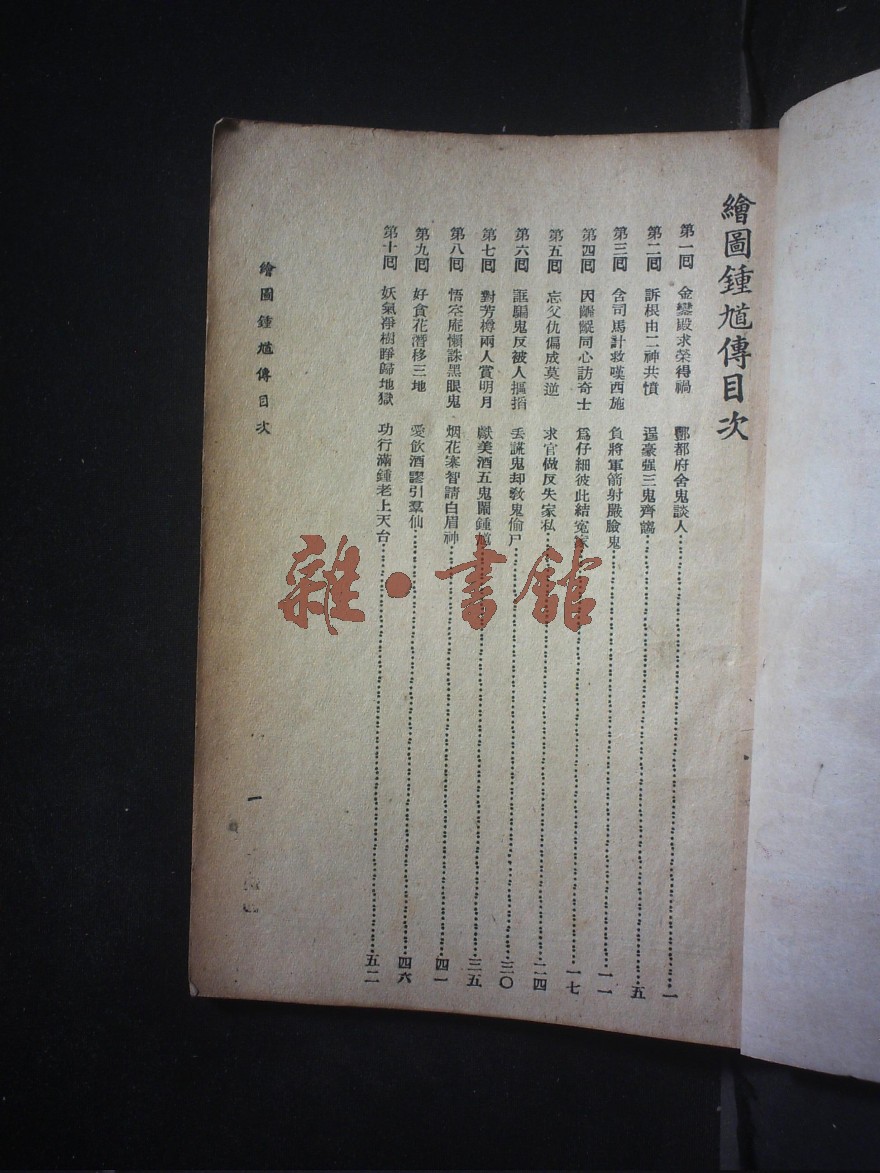 繪圖鍾馗傳目次
第一回 金鑾殿求榮得禍 酆都府舍鬼談人……一
第二回 訴根由二神共憤 逞豪强三鬼齊謅……五
第三回 含司馬計救嘆西施 負將軍箭射嚴臉鬼……一一
第四回 因齷齪同心訪奇士 爲仔細彼此結冤家……一七
第五回 忘父仇偏成莫逆 求官做反失家私……二四
第六回 誆騙鬼反被人摳掐 丢謊鬼却敎鬼偷尸……三〇
第七回 對芳樽兩人賞明月 獻美酒五鬼鬧鍾馗……三五
第八回 悟空庵懶誅黑眼鬼 烟花寨智請白眉神……四一
第九回 好貪花潛移三地 愛飲酒謬引羣仙……四六
第十回 妖氣淨樹睜歸地獄 功行滿鍾老上天台……五二
繪圖鍾馗傳目次
一
雜·書館